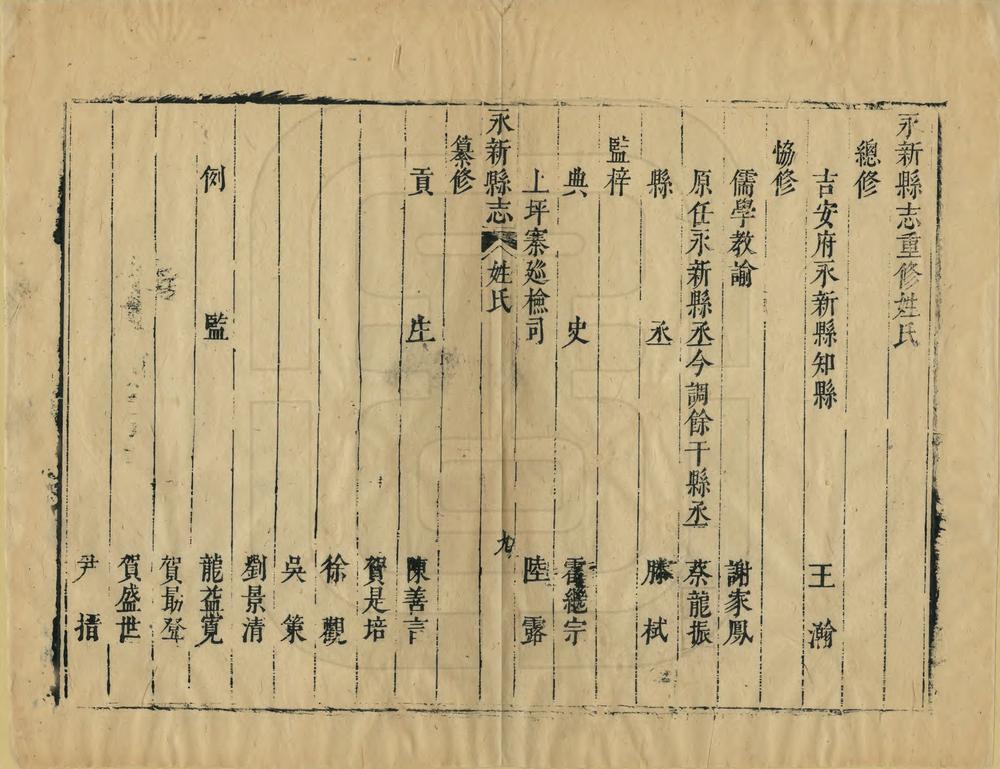 永新縣志重修姓氏
總修
吉安府永新縣知縣 王瀚
協修
儒學教諭 謝家鳳
原任永新縣丞今調餘干縣丞 蔡龍振
縣丞 滕栻
監梓
典史 霍繼宗
上坪寨廵檢司 陸露
永新縣志 姓氏 九
纂修
貢生 陳善言
賀是培
徐觀
吳策
劉景清
例監 龍益寬
賀勗聲
賀盛世
尹搢